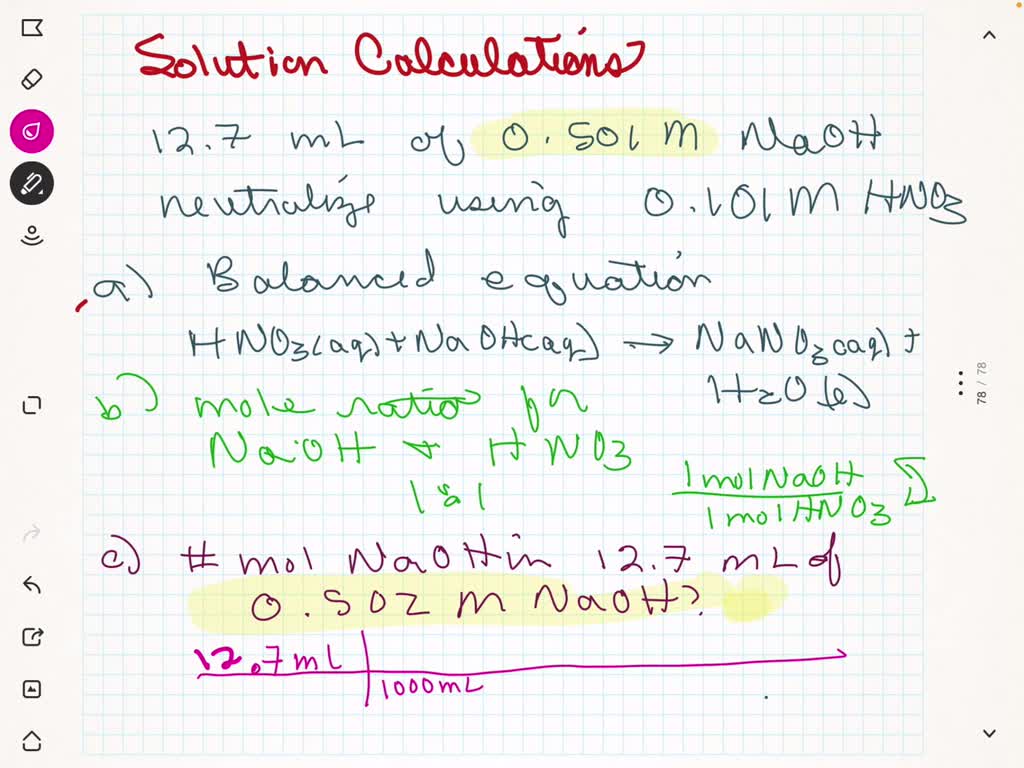 Solution Calculations
12.7 mL of 0.501 M NaOH
neutralize using 0.101 M HNO3
a) Balanced equation
HNO3(aq) + NaOH(aq) → NaNO3(aq) +
H2O(l)
b) mole ratio for
NaOH + HNO3
1:1
1 mol NaOH
1 mol HNO3
c) # mol NaOH in 12.7 mL of
0.502 M NaOH?
12.7 mL
1000 mL
78 / 78